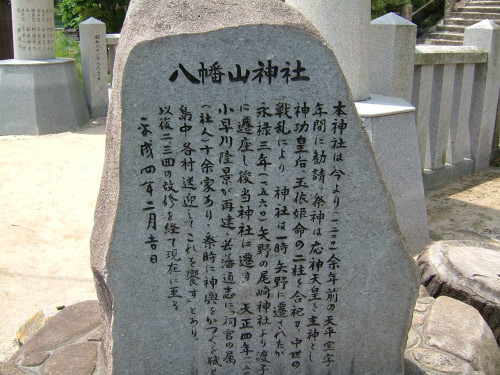 八幡山神社
本神社は今より(一二〇〇余年前の天平宝字
年間に勧請、祭神は応神天皇を主神とし
神功皇后、玉依姫命の二柱を合祀す。中世の
戦乱により、神社は一時矢野に遷されたが
永禄三年(一五六〇)矢野の尾崎神社より渡子
に遷座し後当神社に遷す。天正四年(一五
小早川隆景が再建、芸藩通志に祠官の属
(社人)十余家あり、祭時に神輿をかつぐを職と
島中各村送迎してこれを饗すとあり。
以後二三回の改修を経て現在に至る。
平成四年二月吉日